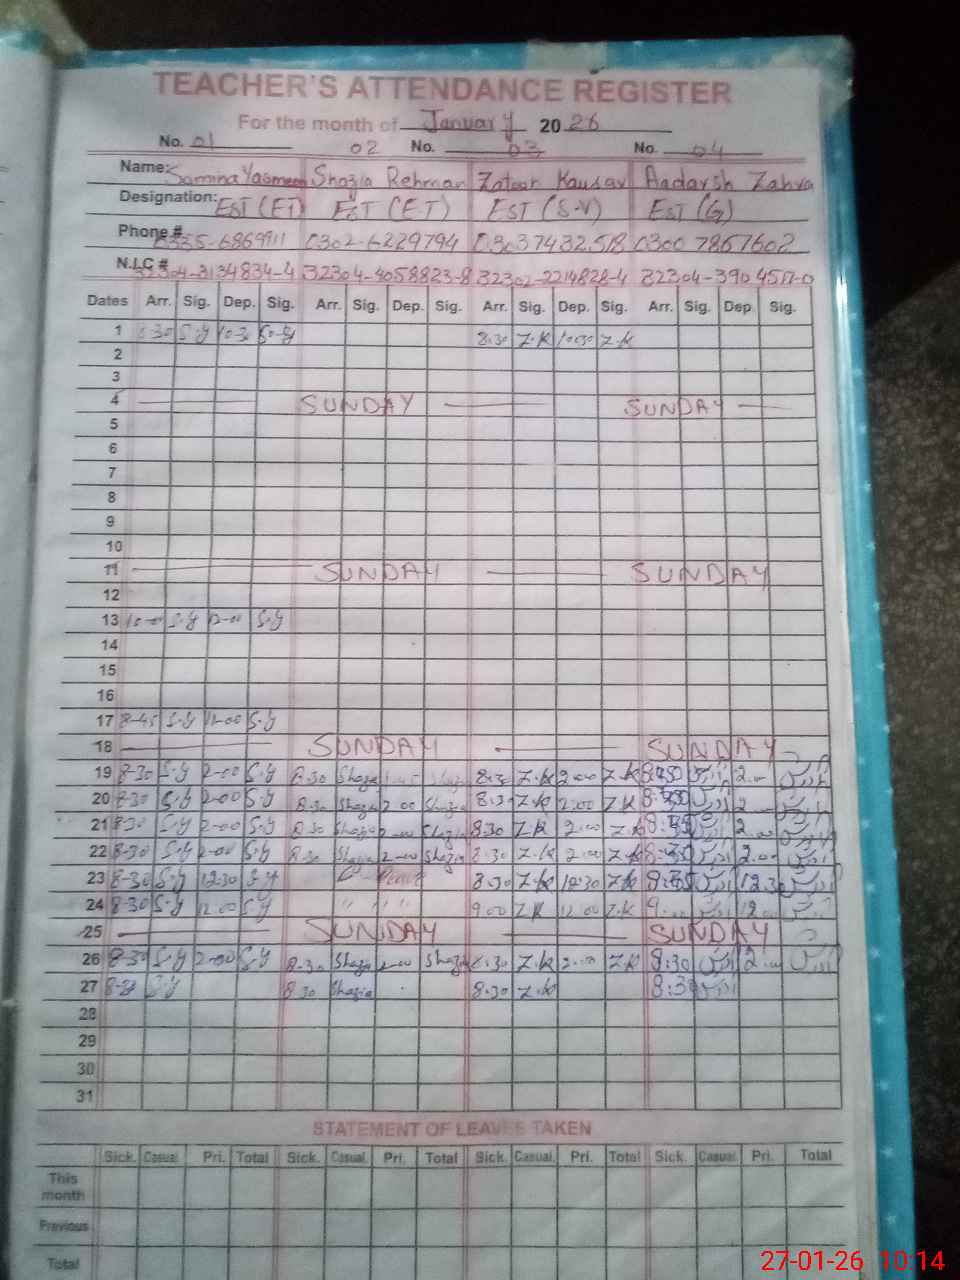 TEACHER'S ATTENDANCE REGISTER
For the month of January 2026
No. 01 02 No. 03 No. 04
Name: Samina Yasmeen Shazia Rehman Kausar Zahra
Designation: EST (ET) EST (E.T) EST (S.V) EST (G)
Phone # 0335-6869911 0302-6229794 03037432518 0300 7867602
N.I.C # 32304-3134834-4 32304-4058823-8 32302-2214828-4 32304-390
Dates Arr. Sig. Dep. Sig. Arr. Sig. Dep. Sig. Arr. Sig. Dep. Sig. Arr. Sig. Dep Sig.
1 S.y S.y 8.30 Z.K 10.30 Z.K
2
3
4 SUNDAY SUNDAY
5
6
7
8
9
10
11 SUNDAY SUNDAY
12
13 S.y 12-00 S.y
14
15
16
17 8-45 S.y 11-00 S.y
18 SUNDAY SUNDAY
19 8-30 S.y 2-00 S.y 8.30 Shazia Shazia 8.30 Z.K 2.00 Z.K 2.00
20 8-30 S.y 2-00 S.y 8.30 Shazia 2.00 Shazia 8.30 Z.K 2.00 Z.K
21 8-30 S.y 2-00 S.y 8.30 Shazia 2-00 Shazia 8.30 Z.K 2.00 Z.K 2.00
22 8-30 S.y 2-00 S.y 8.30 Shazia 2-00 Shazia 8.30 Z.K 2.00 Z.K 2.00
23 8-30 S.y 12.30 S.y 8.30 Z.K 12.30 Z.K 12.30
24 8-30 S.y 12.00 S.y " " " " 9.00 Z.K 12.00 Z.K 12.00
25 SUNDAY SUNDAY
26 8-30 S.y 2-00 S.y 8.30 Shazia 2-00 Shazia 8.30 Z.K 2.00 Z.K 8:30 2.00
27 S.y 8.30 Shazia 8.30 Z.K 8:30
28
29
30
31
STATEMENT OF LEAVES TAKEN
Sick. Casual. Pri. Total Sick. Casual. Pri. Total Sick. Casual. Pri. Total Sick. Casual. Pri. Total
This month
Previous
Total
27-01-26 10:14